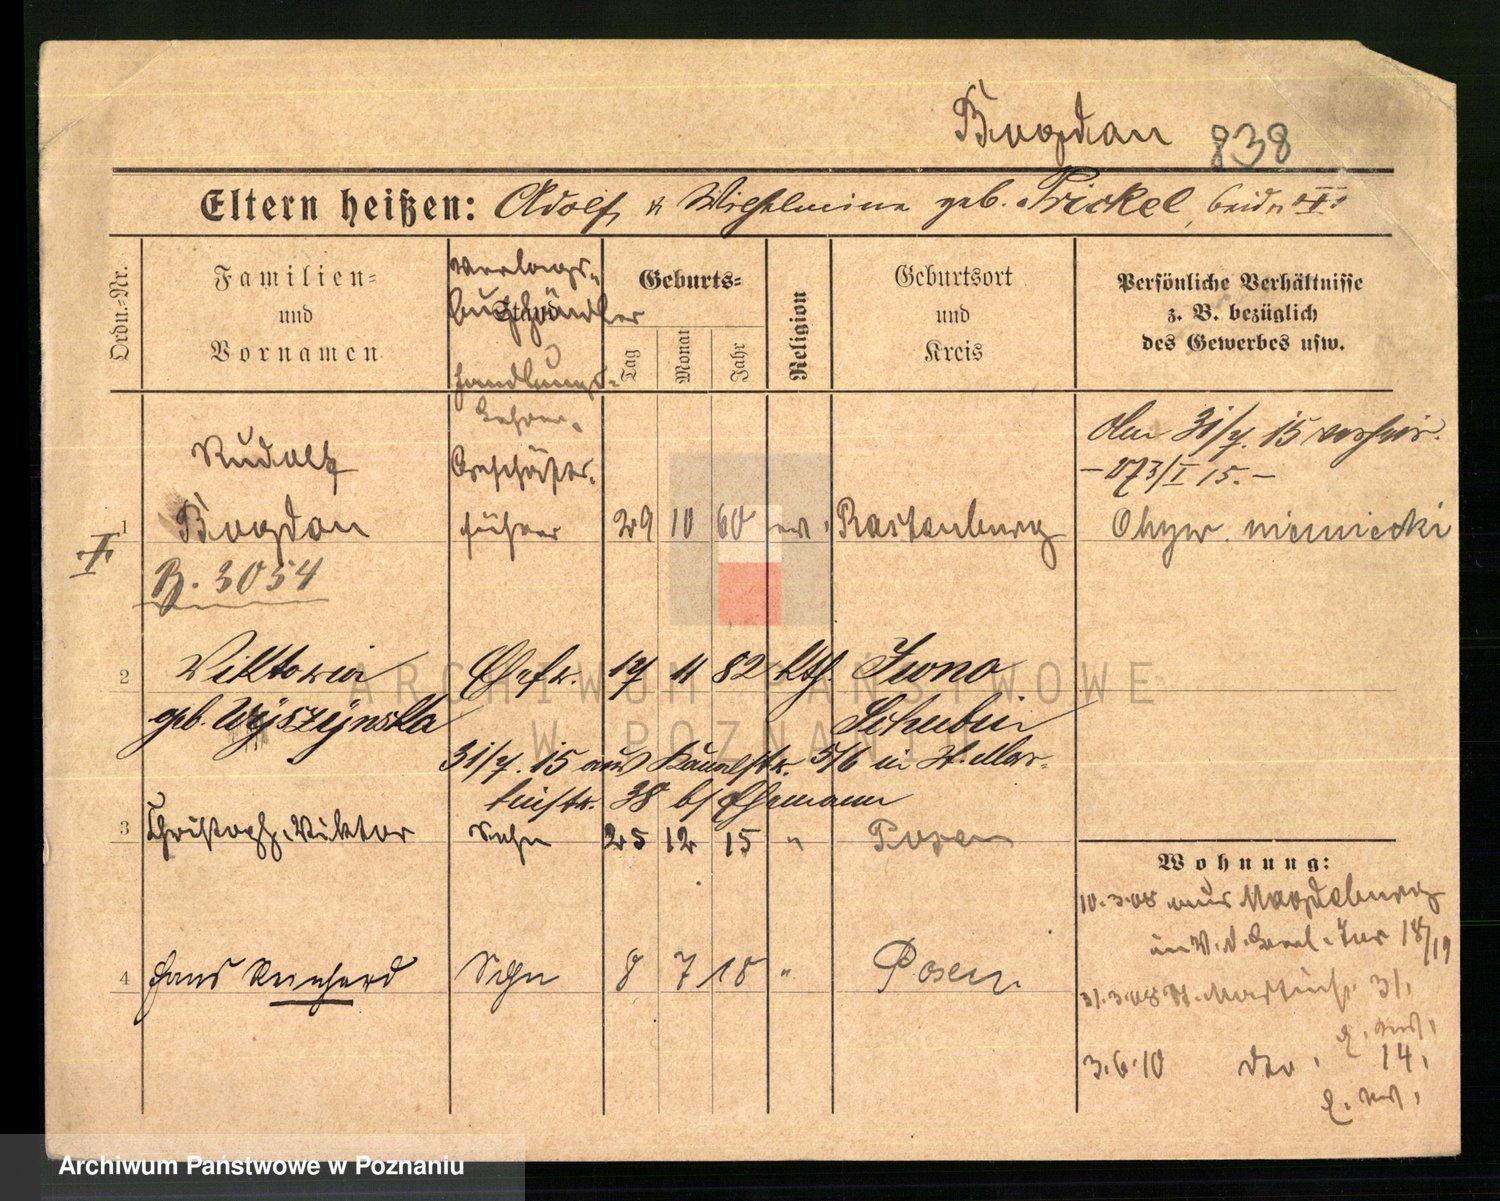 Bogdan 838
Eltern heißen: Adolf u Wilhelmine geb. Prickel, beide
Ordn.-Nr.
Familien-
und
Vornamen
Verlags-
buchhändler
Stand
Handlungs-
Lehrer
Geschäfts-
führer
Geburts-
Tag
Monat
Jahr
Religion
Geburtsort
und
Kreis
Persönliche Verhältnisse
z. B. bezüglich
des Gewerbes usw.
1 Rudolf
Bogdan 29 10 60 ev. Rastenburg
B. 3054
31/7. 15
15.
Obyw. niemiecki
2 Viktoria Ehefr. 17 11 82 kth. Iwno
geb. Wyszynska Schubin
31/7. 15 aus 5/6 in St. Mar-
tinstr. 38 b/ Ehemann
3 Christoph, Viktor Sohn 25 12 15 " Posen
4 Hans Reinhard Sohn 8 7 18 " Posen.
Wohnung:
10.3.08 aus Magdeburg
in 18/19
31.3.08 St. Martinstr. 31,
3.6.10 dto. 14,
ARCHIWUM PAŃSTWOWE
W POZNANIU
Archiwum Państwowe w Poznaniu